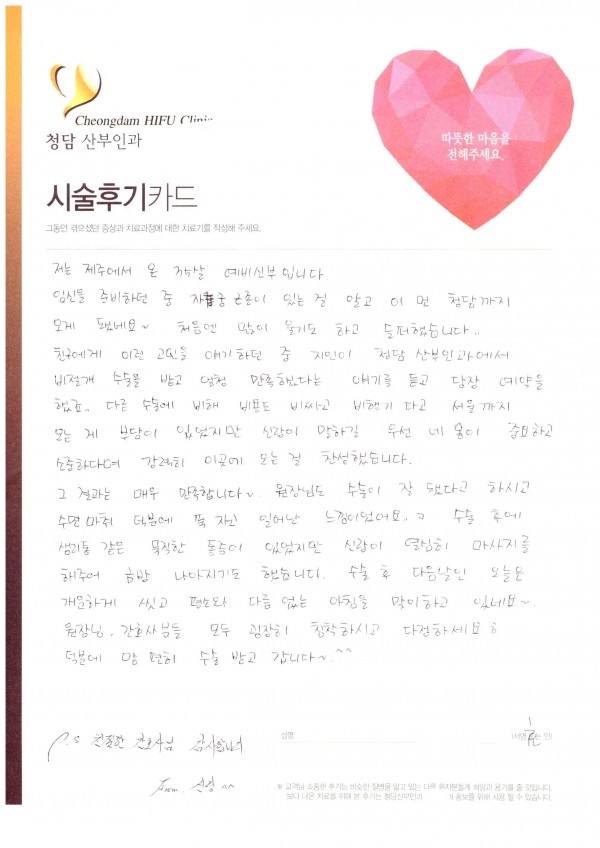 Cheongdam HIFU Clinic
청담 산부인과
따뜻한 마음을
전해주세요.
시술후기카드
그동안 겪으셨던 증상과 치료과정에 대한 치료기를 작성해 주세요.
저는 제주에서 온 35살 예비신부입니다.
임신을 준비하던 중 자궁근종이 있는 걸 알고 이 먼 청담까지
오게 됐네요~ 처음엔 많이 울기도 하고 슬퍼했습니다..
친구에게 이런 고민을 얘기하던 중 지인이 청담 산부인과에서
비절개 수술을 받고 엄청 만족한다는 얘기를 듣고 당장 예약을
했죠.. 다른 수술에 비해 비용도 비싸고 비행기 타고 서울까지
오는 게 부담이 있었지만 신랑이 말하길 우선 네 몸이 중요하고
소중하다며 강력히 이곳에 오는 걸 찬성했습니다.
그 결과는 매우 만족합니다~. 원장님도 수술이 잘 됐다고 하시고
수면마취 덕분에 푹 자고 일어난 느낌이었어요..ㅋ 수술 후에
생리통 같은 묵직한 통증이 있었지만 신랑이 열심히 마사지를
해주어 금방 나아지기도 했습니다. 수술 후 다음날인 오늘은
개운하게 씻고 평소와 다름 없는 아침을 맞이하고 있네요~.
원장님, 간호사분들 모두 굉장히 침착하시고 다정하세요ㅎ
덕분에 맘 편히 수술 받고 갑니다~.^^
성명
(서명 는 인)
P.S 친절한 간호사님 감사합니다
From. 신랑 ^^
※ 고객님 소중한 후기는 비슷한 질병을 앓고 있는 다른 환자분들께 희망과 용기를 줄 것입니다.
보다 나은 치료를 위해 본 후기는 청담산부인과 의 홍보를 위해 사용 될 수 있습니다.